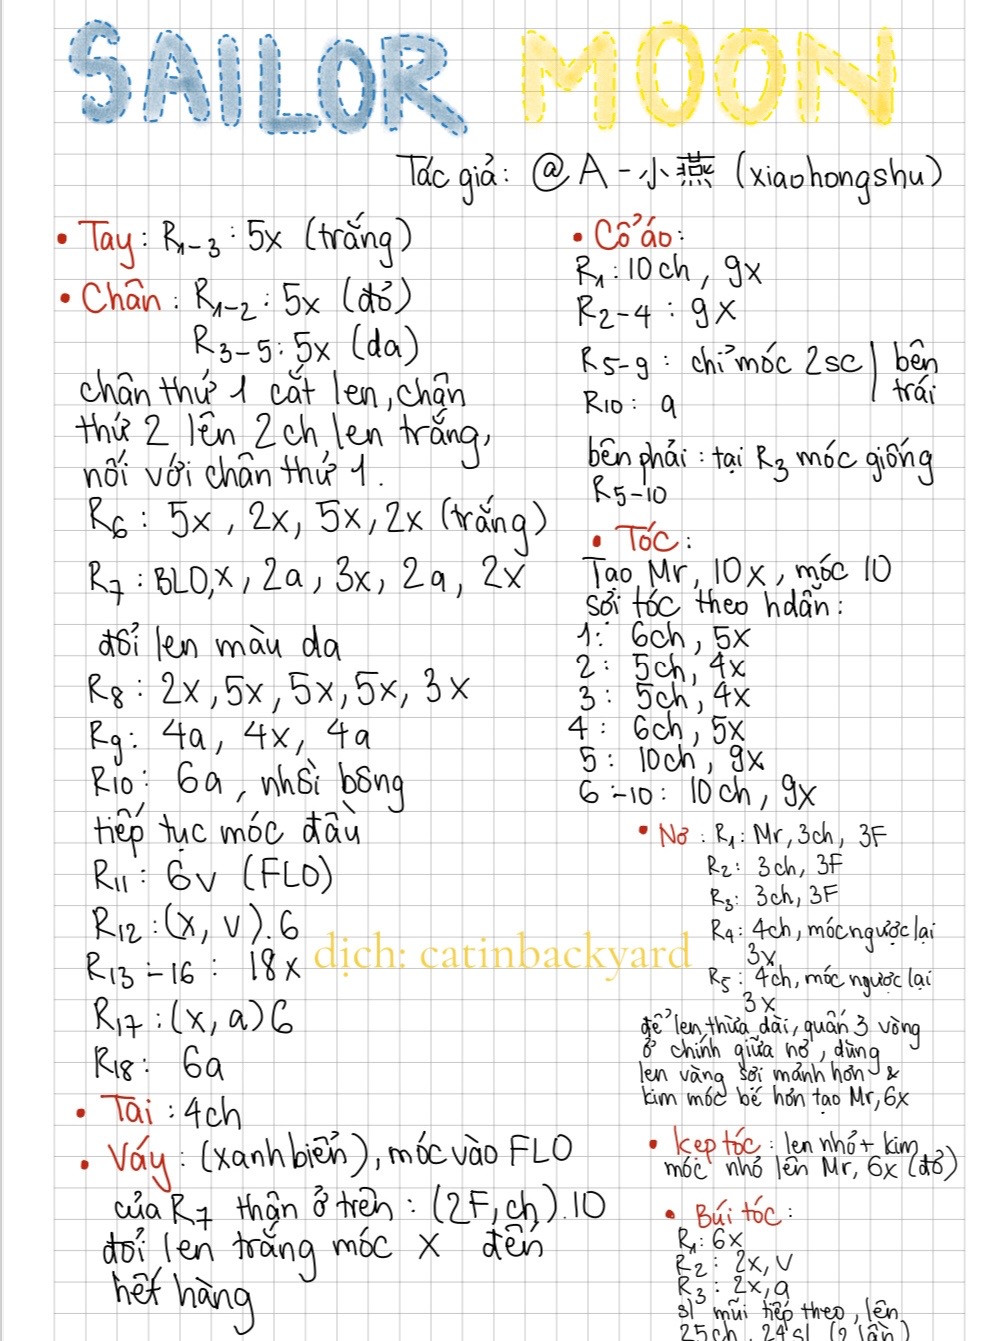 SAILOR MOON
Tác giả: @A-小燕 (xiaohongshu)
• Tay: R1-3: 5x (trắng)
• Chân: R1-2: 5x (đỏ)
R3-5: 5x (da)
chân thứ 1 cắt len, chân
thứ 2 lên 2ch len trắng,
nối với chân thứ 1.
R6: 5x, 2x, 5x, 2x (trắng)
R7: BLO, x, 2a, 3x, 2a, 2x
đổi len màu da
R8: 2x, 5x, 5x, 5x, 3x
R9: 4a, 4x, 4a
R10: 6a, nhồi bông
tiếp tục móc đầu
R11: 6v (FLO)
R12: (x, v).6
R13-16: 18x
R17: (x, a)6
R18: 6a
• Tai: 4ch
• Váy: (xanh biển), móc vào FLO
của R7 thân ở trên: (2F, ch).10
đổi len trắng móc x đến
hết hàng
• Cổ áo:
R1: 10ch, 9x
R2-4: 9x
R5-9: chỉ móc 2sc | bên
trái
R10: a
bên phải: tại R3 móc giống
R5-10
• Tóc:
Tạo Mr, 10x, móc 10
sợi tóc theo hdẫn:
1: 6ch, 5x
2: 5ch, 4x
3: 5ch, 4x
4: 6ch, 5x
5: 10ch, 9x
6-10: 10ch, 9x
• Nơ: R1: Mr, 3ch, 3F
R2: 3ch, 3F
R3: 3ch, 3F
R4: 4ch, móc ngược lại
3x
R5: 4ch, móc ngược lại
3x
để len thừa dài, quấn 3 vòng
ở chính giữa nơ, dùng
len vàng sợi mảnh hơn &
kim móc bé hơn tạo Mr, 6x
• Kẹp tóc: len nhỏ + kim
móc nhỏ lên Mr, 6x (đỏ)
• Búi tóc:
R1: 6x
R2: 2x, v
R3: 2x, a
sl mũi tiếp theo, lên
25ch, 24sl (2 lần)
dịch: catinbackyard